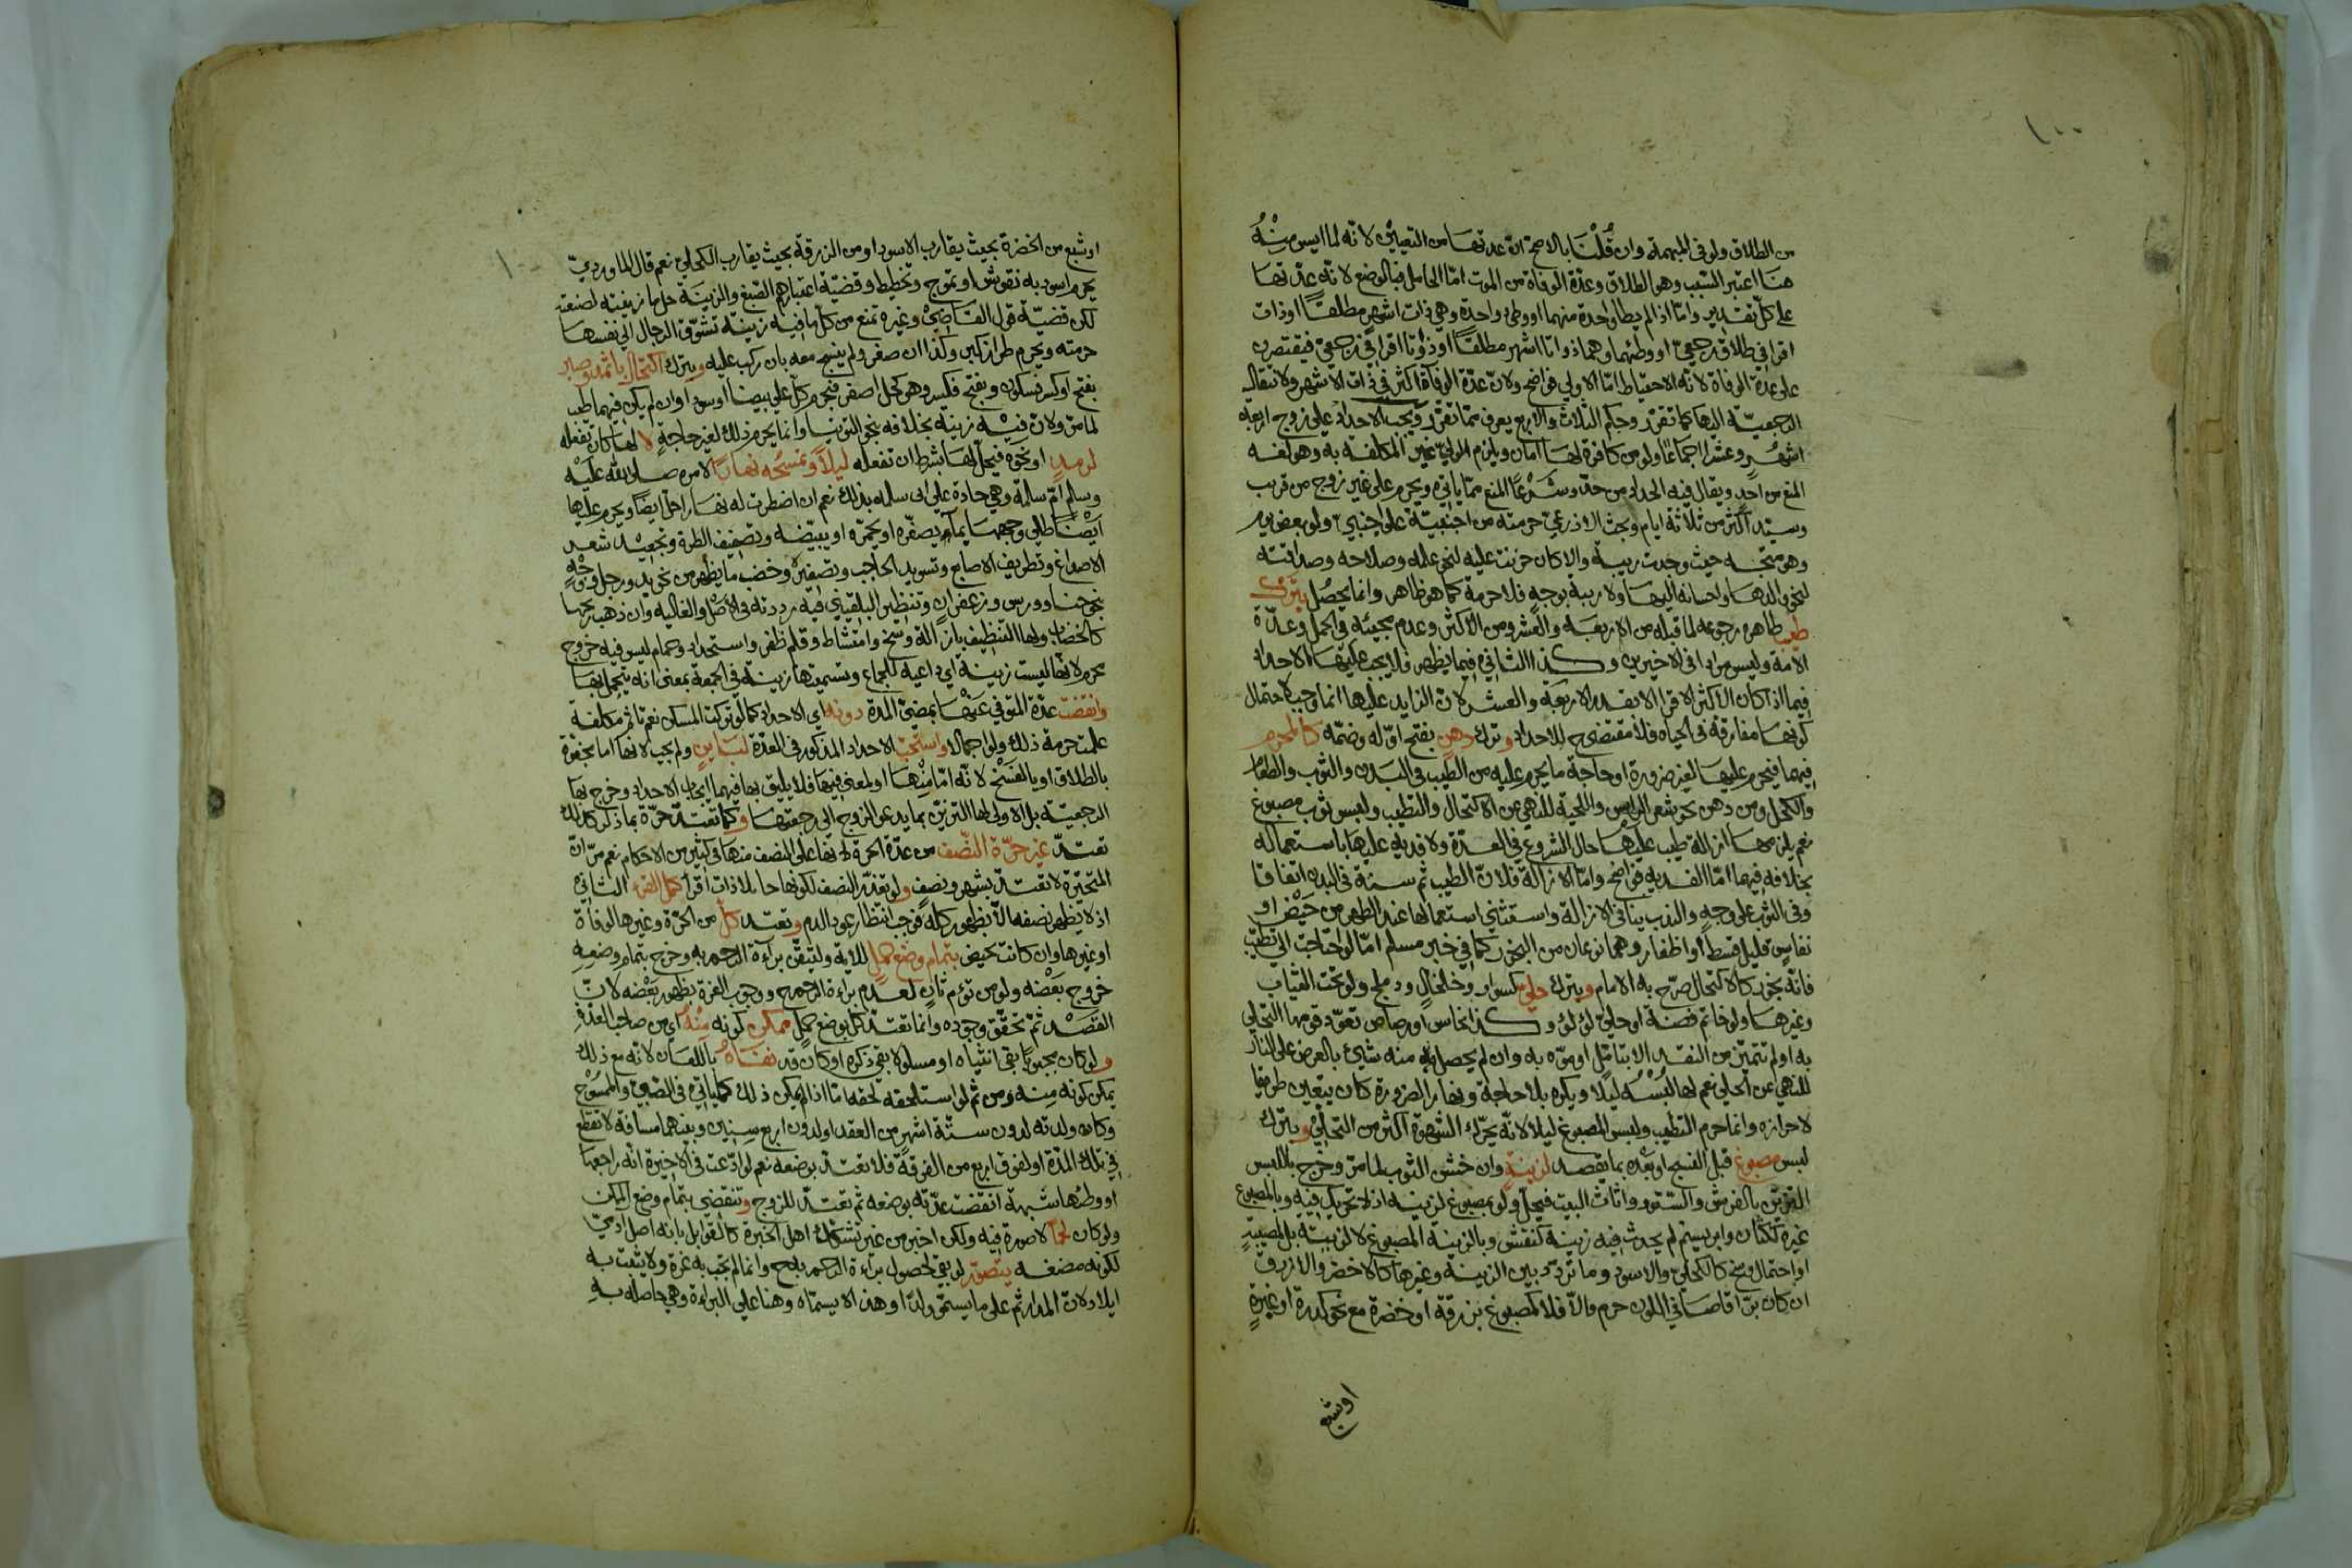 ١٠٠
من الطلاق ولو في المبهمة وان قُلْنَا بالاصح ان عدتها من التعيين لانه لما ايس منه
هنا اعتبر السّبب وهو الطلاق وعدّة الوفاة من الموت امّا الحامل فبالوضع لانّه عدّتها
على كلّ تقدير وامّا اذا لم يطأ واحدة منهما او وطئ واحدة وهي ذات اشهر مطلقًا او ذات
اقرا في طلاق رجعيّ او وطئهما وهما ذواتا اشهر مطلقًا او ذوتا اقرا في رجعيّ فيقتصرن
على عدة الوفاة لانّه الاحتياط امّا الاولى فواضح ولانّ عدّة الوفاة اكثر في ذات الاشهر ولانتقال
الرجعيّة اليها كما تقرّر وحكم الثلاث والاربع يعرف ممّا تقرّر ويجب الاحداد على زوج اربعة
اشهُر وعشرا اجماعًا ولو من كافرة لها امان ويلزم الوليّ غير المكلفة به وهو لغة
المنع من احد ويقال فيه الحداد من حدّ وشَرْعًا المنع ممّا ياتي ويحرم على غير زوج من قريب
وسيّد اكثر من ثلاثة ايام وبحث الاذرعيّ حرمته من اجنبيّة على اجنبيّ ولو بعض يوم
وهو متجه حيث وجدت ريبة والا كان حزنت عليه لنحو علمه وصلاحه وصداقته
لنحو والدها واحسانه اليها ولا ريبة بوجه فلا حرمة كما هو ظاهر وانما يحصُل بترك
طيب ظاهره رجوعه لما قبله من الاربعة والعشر ومن الاكثر وعدم مجيئه في الحمل وعدّة
الامة وليس مرادا في الاخيرين وكذا الثاني فيما يظهر فلا يجب عليها الاحداد
فيما اذا كان الاكثر الاقرا الا بقدر الاربعة والعشر لان الزايد عليها انما وجب لاحتمال
كونها مفارقة في الحياه فلا مقتضى للاحداد وترك دهن بفتح اوّله وضمّه كالمحرم
فيهما فيحرم عليها لغير ضرورة او حاجة ما يحرم عليه من الطيب في البدن والثوب والطعام
والكحل ومن دهن نحو شعر الراس واللحية للنهي عن الاكتحال والتطيب ولبس ثوب مصبوغ
نعم يلزمها ازالة طيب عليها حال الشروع في العدّة ولا فدية عليها باستعماله
بخلافه فيهما امّا الفدية فواضح وامّا الازالة فلانّ الطيب ثم سنة في البدن اتفاقا
وفي الثوب على وجه والندب ينافي الازالة واستثني استعمالها عند الطهر من حَيْض او
نفاس قليل قسط او اظفار وهما نوعان من البخور كما في خبر مسلم امّا لو احتاجت الى تطيّب
فانّه يجوز كالاكتحال صرّح به الامام وبترك حلي كسوار وخلخال ودملج ولو تحت الثياب
وغيرها ولو خاتم فضة او حليّ لؤلؤ وكذا نحاس او رصاص تعوّد قومها التحلي
به او لم تتميّز من النقد الا بتامّل او موّه به وان لم يحصل منه شيئ بالعرض على النار
للنهي عن الحلي نعم لها لُبْسُه ليلا ويكره بلا حاجة ونهارا لضرورة كان يتعين طريقا
لاحرازه وانما حرم التطيب ولبس المصبوغ ليلا لانّه يحرّك الشهوة اكثر من التحلّي وبترك
لبس مصبوغ قبل النسج او بعْده بما يقصد لزينة وان خشن الثوب لما مرّ وخرج باللبس
التزيّن بالفرش والستور واثاث البيت فيحلّ ولو بمصبوغ لزينه اذ لا تحريك فيه وبالمصبوغ
غيره ككتان وابريسم لم يحدث فيه زينة كنقش وبالزينة المصبوغ لا لزينة بل لمصيبة
او احتمال وسخ كالكحلي والاسود وما تردّد بين الزينة وغيرها كالاخضر والازرق
ان كان برّاقا صافي اللون حرم والّا فلا كمصبوغ بزرقة او خضرة مع نحو كدرة او غبرة
او شبع
١٠٠
او شبع من الخضرة بحيث يقارب الاسود او من الزرقة بحيث يقارب الكحلي نعم قال الماورديّ
يحرم اسود به نقوش او تموّج وتخطيط وقضيّة اعتبارهم الصّبغ والزينة حل ما زينته لصنعته
لكن قضيّة قول القاضي وغيره تمنع من كلّ ما فيه زينة تشوّق الرجال الى نفسها
حرمته ويحرم طراز كبير وكذا ان صغر ولم ينسج معه بان ركب عليه وبترك اكتحال باثمد وصبر
بفتح او كسر فسكون وبفتح فكسر وهو كحل اصفر فيحرم كلّ على بيضا او سودا وان لم يكن فيهما طيب
لما مرّ ولان فيه زينة بخلافه بنحو التوتيا وانما يحرم ذلك لغير حاجة لا لها كان تفعله
لرمدٍ او نحوه فيحلّ لها بشرط ان تفعله ليلاً وتمسحُه نهارًا لامره صلى الله عليه
وسلم امّ سلمة وهي حادة على ابي سلمة بذلك نعم ان اضطرت له نهارا حلّ ايضًا ويحرم عليها
ايْضًا طلي وجهها بما يصفّره او يحمّره او يبيّضه وتصفيف الطرة وتجعيد شعر
الاصداغ وتطريف الاصابع وتسويد الحاجب وتصفيره وخضب ما يظهر من نحو يد ورجل ووجْهٍ
بنحو حنا وورس وزعفران وتنظير البلقيني فيه رددته في الاصْل والغالية وان ذهب ريحها
كالخضاب ولها التنظيف بازالة وسخ وامتشاط وقلم ظفر واستحداد وحمام ليس فيه خروج
محرم لانها ليست زينة اي داعية للجماع وتسميتها زينة في الجمعة بمعنى انه يتجمل بها
وانقضت عدّة المتوفى عنها بمضيّ المدة دونه اي الاحداد كما لو تركت المسكن نعم تاثم مكلفة
علمت حرمة ذلك ولو اجمالا واستحبّ الاحداد المذكور في العدّة لبَاين ولم يجب لانها اما مجفوة
بالطلاق او بالفسخ لانّه امّا منْها او لمعنى فيها فلا يليق بها فيهما ايجاب الاحداد وخرج بها
الرجعيّة بل الاولى لها التزيّن بما يدعو الزوج الى رجعتها وكما تعتدّ حرّة بما ذكر كذلك
تعتدّ غير حرّة النّصف من عدّة الحرة لانها على النصف منها في كثير من الاحكام نعم مرّ انّ
المتحيّرة لا تعتدّ بشهر ونصف ولو تعذّر النصف لكونها حايلا ذات اقرأ كمل القرء الثاني
اذ لا يظهر نصفه الّا بظهور كله فوجب انتظار عود الدم وتعتد كلّ من الحرّة وغيرها لوفاة
او غيرها وان كانت تحيض بتمام وضع حملٍ للاية ولتيقّن براءة الرحم به وخرج بتمام وضعه
خروج بعْضه ولو من توءم ثانٍ لعدم براءة الرحم ووجوب الغرة بظهور بعْضه لانّ
القصْد ثم تحقّق وجوده وانما تعتدّ كلّ بوضع حمل ممكن كونه منْهُ اي من صاحب العدّة
ولو كان مجبوبًا بقي انثياه او مسلولا بقي ذكره او كان قد نفاهُ باللعان لانه مع ذلك
يمكن كونه منه ومن ثم لو استلحقه لحقه امّا اذا لم يكن ذلك كما ياتي في الصّبيّ والممسُوح
وكان ولدته لدون ستّة اشهر من العقد او لدون اربع سنين وبينهما مسافة لا تقطع
في تلك المدّة او لفوق اربع من الفرقة فلا تعتدّ بوضعه نعم لو ادّعت في الاخيرة انه راجعها
او وطئها شبهة انقضت عدّته بوضعه ثم تعتدّ للزوج وتنقضي بتمام وضع الممكن
ولو كان لحمًا لا صورة فيه ولكن اخبر من غير تشكّك اهل الخبرة كالقوابل بانه اصل ادميّ
لكونه مضغه يتصوّر لو بقي لحصول براءة الرحم به وانما لم تجب به غرة ولا يثبت به
ايلاد لانّ المدار ثم على ما يسمّى ولدًا وهذا لا يسمّاه وهنا على البراءة وهي حاصله به